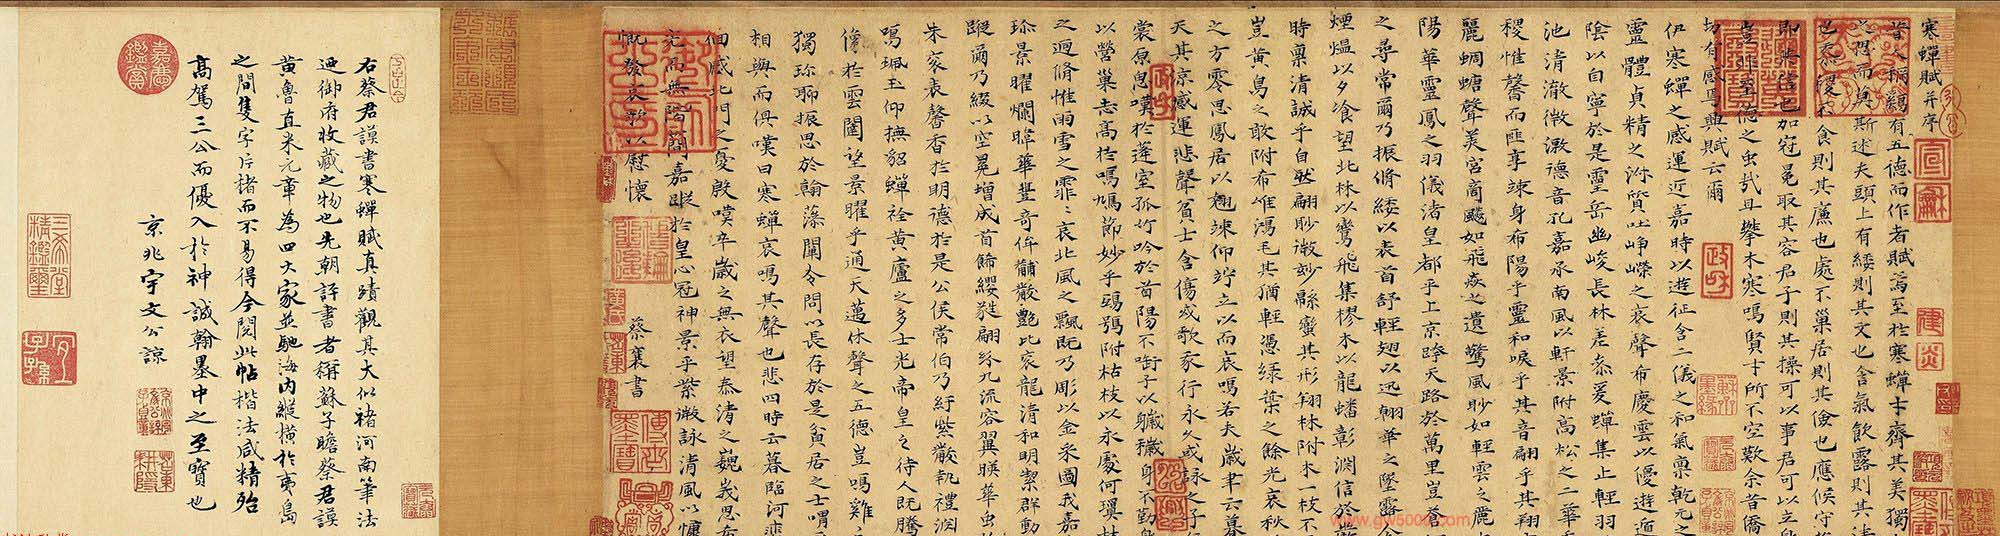 寒蟬賦并序
昔人稱鷄有五德而作者賦焉至於寒蟬才齊其美獨
之思而莫斯述夫頭上有緌則其文也含氣飲露則其清
也黍稷不食則其廉也處不巢居則其儉也應候守
則其信也加冠冕取其容君子則其操可以事君可以立
豈非至德之虫哉且攀木寒鳴賢才所不空歎余昔僑
切有感焉興賦云爾
伊寒蟬之感運近嘉時以遊征含二儀之和氣稟乾元之
靈體貞精之淑質吐崢嶸之哀聲布慶雲以優遊遁
陰以自寧於是靈岳幽峻長林參差爰蟬集止輕羽
池清澈微激德音孔嘉承南風以軒景附高松之二華
稷惟馨而匪享竦身布陽乎靈和唳乎其音翩乎其翔
麗蜩螗聲美宮商飄如飛焱之遺驚風眇如輕雲之麗
陽華靈鳳之羽儀渚皇都乎上京跨天路於萬里豈蒼
之尋常爾乃振脩緌以表首舒輕翅以迅翰華之墜露含
煙熅以夕飡望北林以鸞飛集樛木以龍蟠彰淵信於
時稟清誠乎自然翩眇微妙緜蠻其形翔林附木一枝不
豈黃鳥之敢附布惟鴻毛其猶輕憑綠葉之餘光哀秋
之方零思鳳居以翹竦仰竚立以而哀鳴若夫歲聿云暮
天其凉感運悲聲貧士含傷或歌我行永久或詠之子
裳原思嘆於蓬室孤竹吟於首陽不銜子以穢身不勤
以營巢志高於鳴鳩節妙乎鴟鴞附枯枝以永處何瓊林
之迴脩惟雨雪之霏〻哀北風之飄既乃彫以金采圖我嘉
珍景曜爛暐華豐奇侔黼黻艷比袞龍清和明潔群動
蹤爾乃綴以玄冕增成首飾纓蕤翩紛九流容翼暎華虫
朱袞馨香於明德於是公侯常伯乃紆紫黻執禮淵
鳴珮玉仰撫貂蟬飾黃廬之多士光帝皇之侍人既騰
儀於雲閣望景曜乎通天邁休聲之五德豈鳴雞
獨珍聊振思於翰藻闡令問以長存於是貧居之士喟
相與而俱嘆曰寒蟬哀鳴其聲也悲四時云暮臨河
徊感北門之憂殷嘆卒歲之無衣望泰清之巍峩思希
光而無階簡嘉蹤於皇心冠神景乎紫微詠清風以慷
慨發哀歌以慰懷
蔡襄書
右蔡君謨書寒蟬賦真蹟觀其大似褚河南筆法
迺御府收藏之物也先朝評書者稱蘇子瞻蔡君謨
黃魯直米元章為四大家並馳海內縱橫於夷島
之間隻字片楮而不易得今閱此帖楷法咸精殆
高駕三公而優入於神誠翰墨中之至寶也
京兆宇文公諒